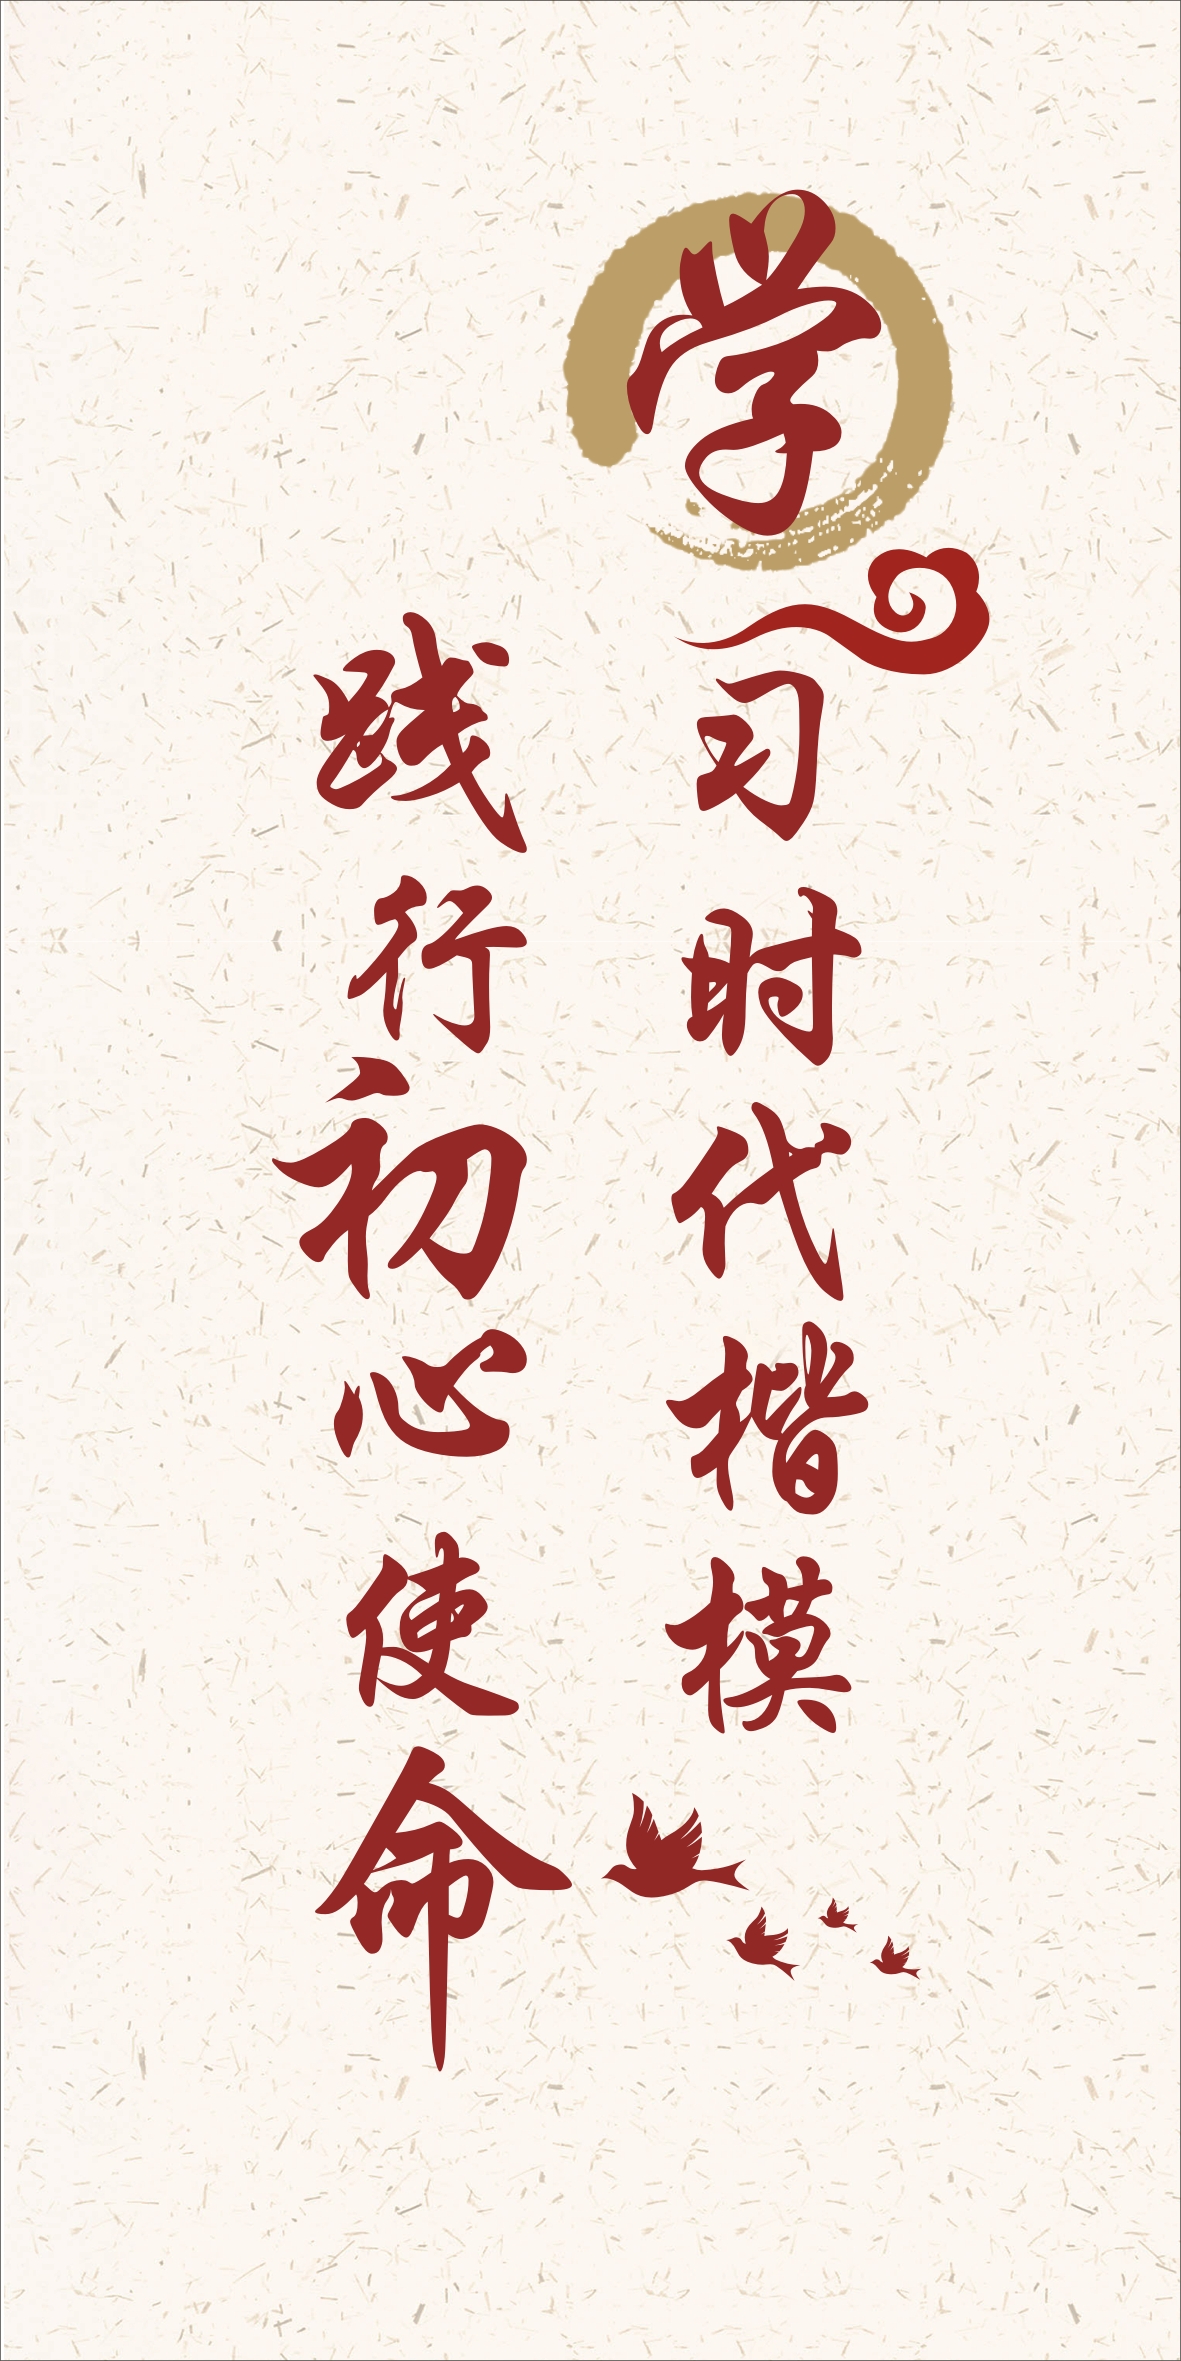 学习时代楷模
践行初心使命